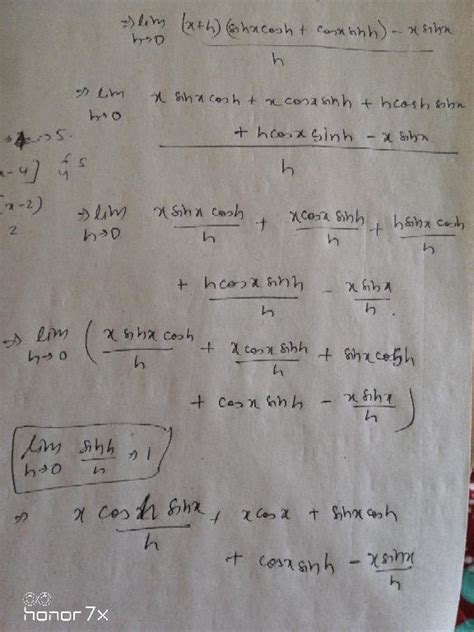 ⇒ lim h→0 (x+h) (sinx cosh + cosx sinh) - x sinx / h
⇒ lim h→0 x sinx cosh + x cosx sinh + h cosh sinx
+ h cosx sinh - x sinx / h
x-4]
x-2)
2
⇒ lim h→0 x sinx cosh / h + x cosx sinh / h + h sinx cosh / h
+ h cosx sinh / h - x sinx / h .
⇒ lim h→0 ( x sinx cosh / h + x cosx sinh / h + sinx cosh
+ cosx sinh - x sinx / h )
lim h→0 sinh / h = 1
⇒ x cosh sinx / h + x cosx + sinx cosh
+ cosx sinh - x sinx / h
honor 7x